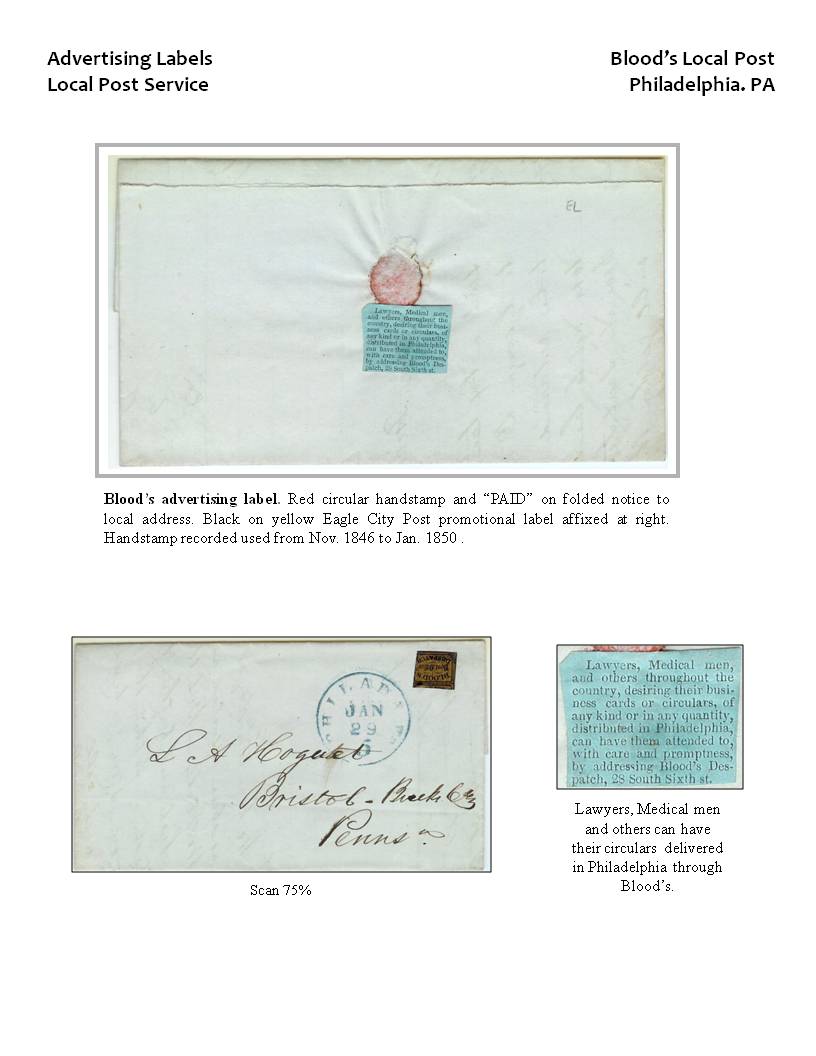 Advertising Labels
Local Post Service
Blood's Local Post
Philadelphia. PA
EL
Lawyers, Medical men,
and others throughout the
country, desiring their busi-
ness cards or circulars, of
any kind or in any quantity,
distributed in Philadelphia,
can have them attended to,
with care and promptness,
by addressing Blood's Des-
patch, 28 South Sixth st.
Blood's advertising label. Red circular handstamp and "PAID" on folded notice to
local address. Black on yellow Eagle City Post promotional label affixed at right.
Handstamp recorded used from Nov. 1846 to Jan. 1850 .
PHILADA Pa
JAN
29
5
L A Hoguet
Bristol - Bucks Co
Penns a.
Scan 75%
Lawyers, Medical men,
and others throughout the
country, desiring their busi-
ness cards or circulars, of
any kind or in any quantity,
distributed in Philadelphia,
can have them attended to,
with care and promptness,
by addressing Blood's Des-
patch, 28 South Sixth st.
Lawyers, Medical men
and others can have
their circulars delivered
in Philadelphia through
Blood's.